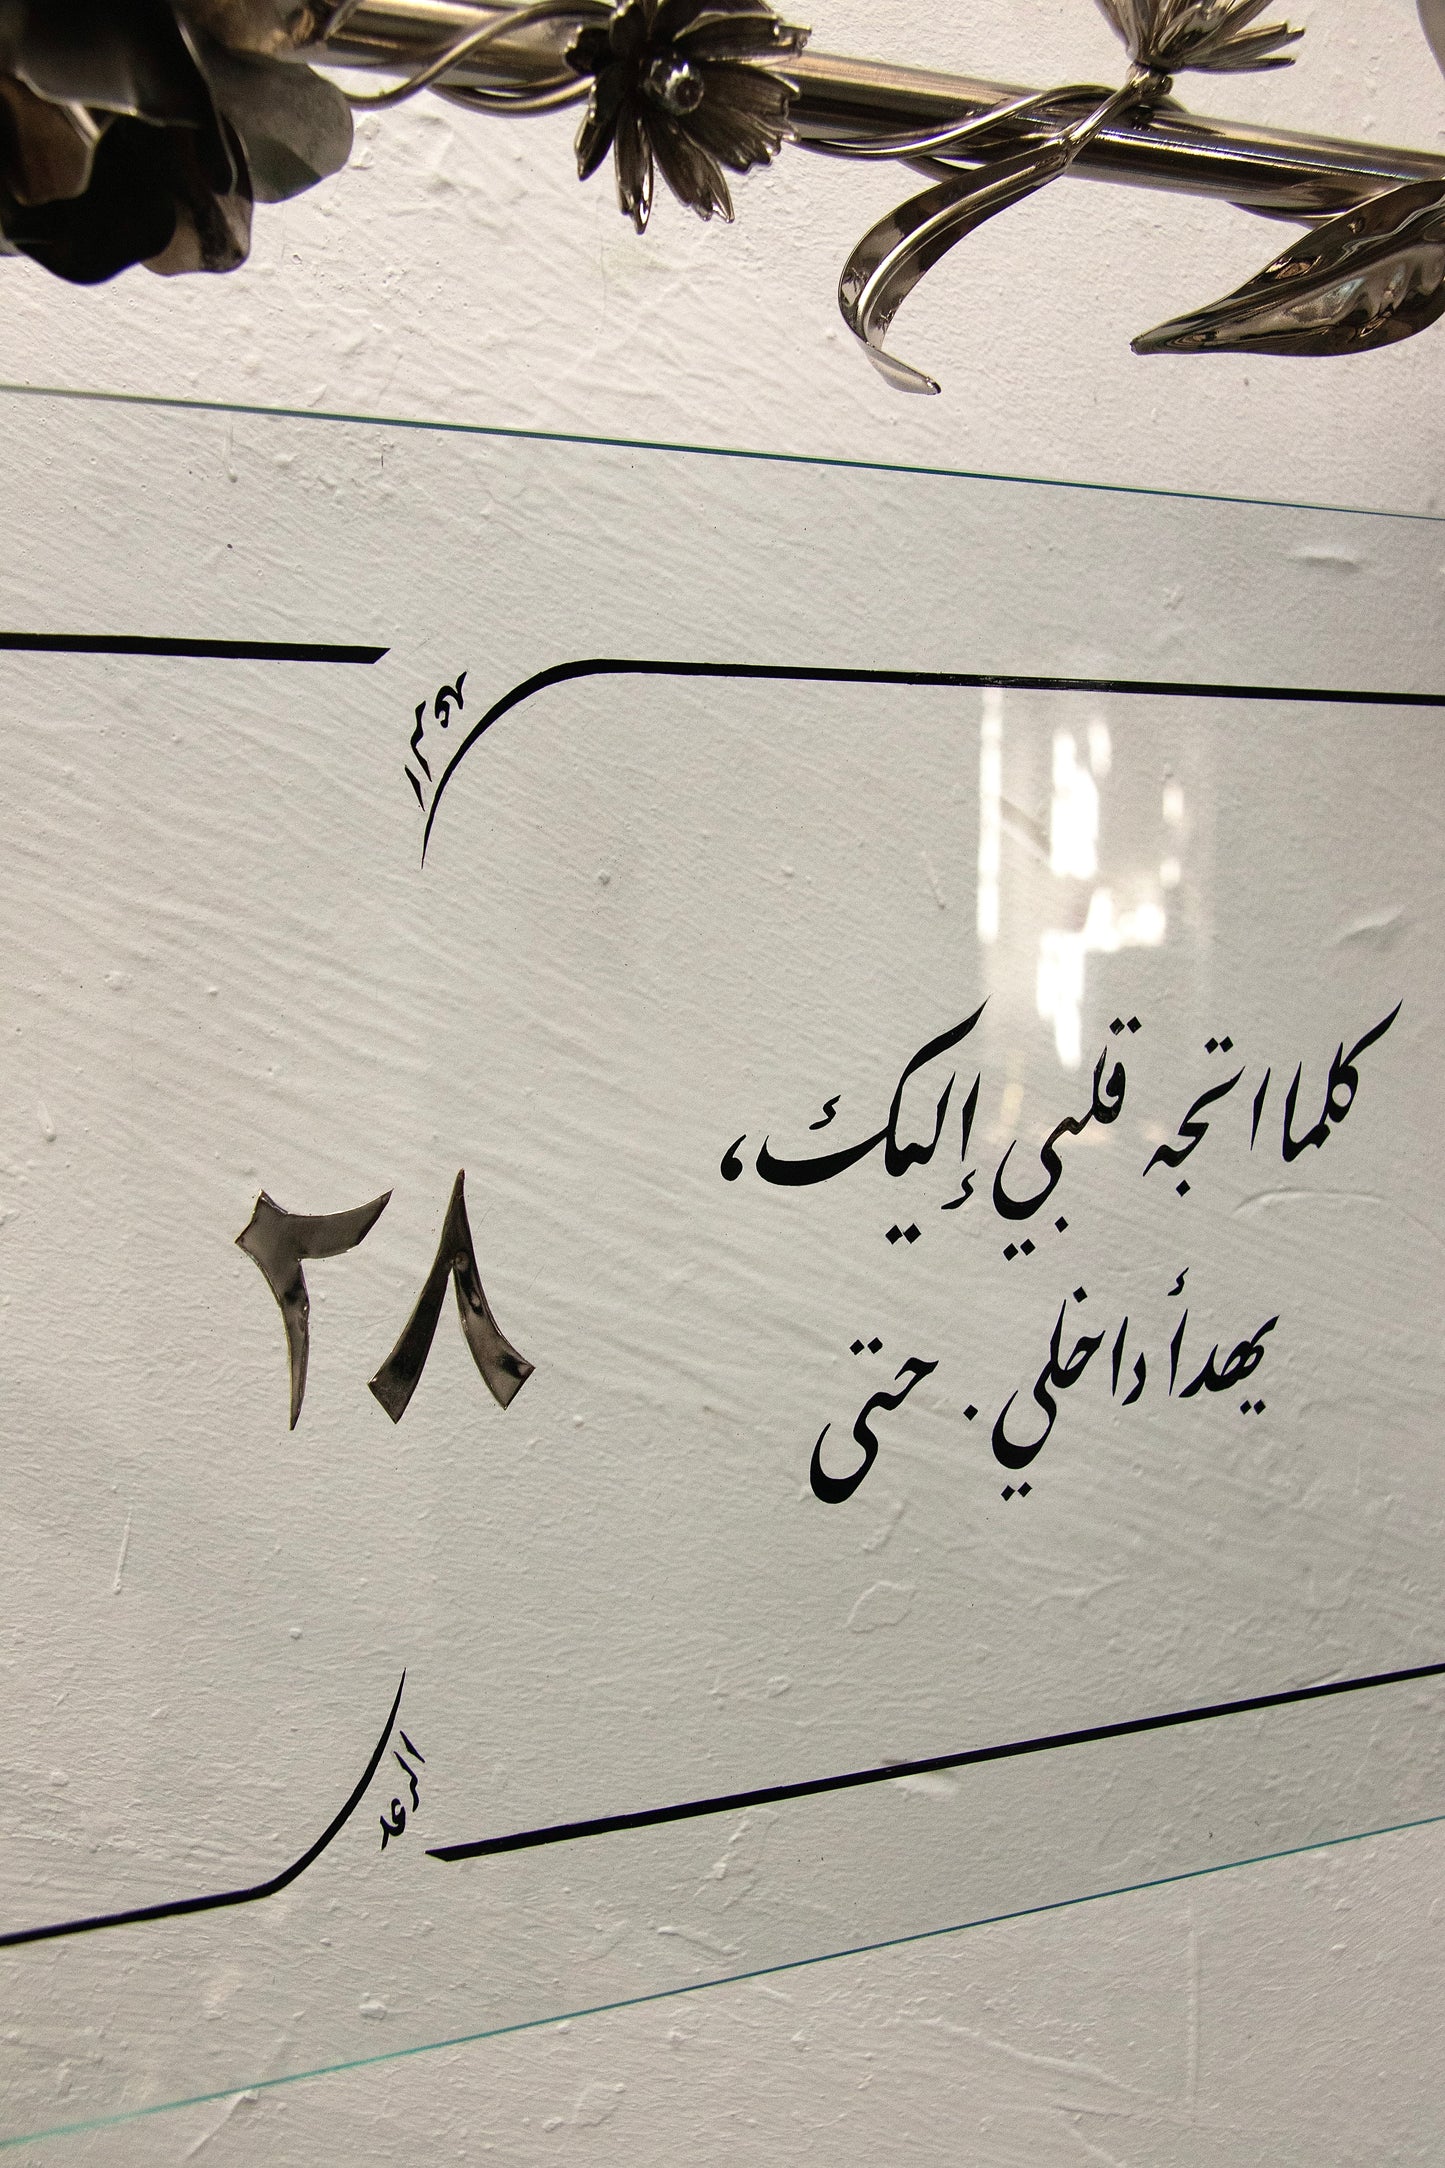 كلما اتجه قلبي إليك،
يهدأ داخلي . حتى
٢٨
الرعد